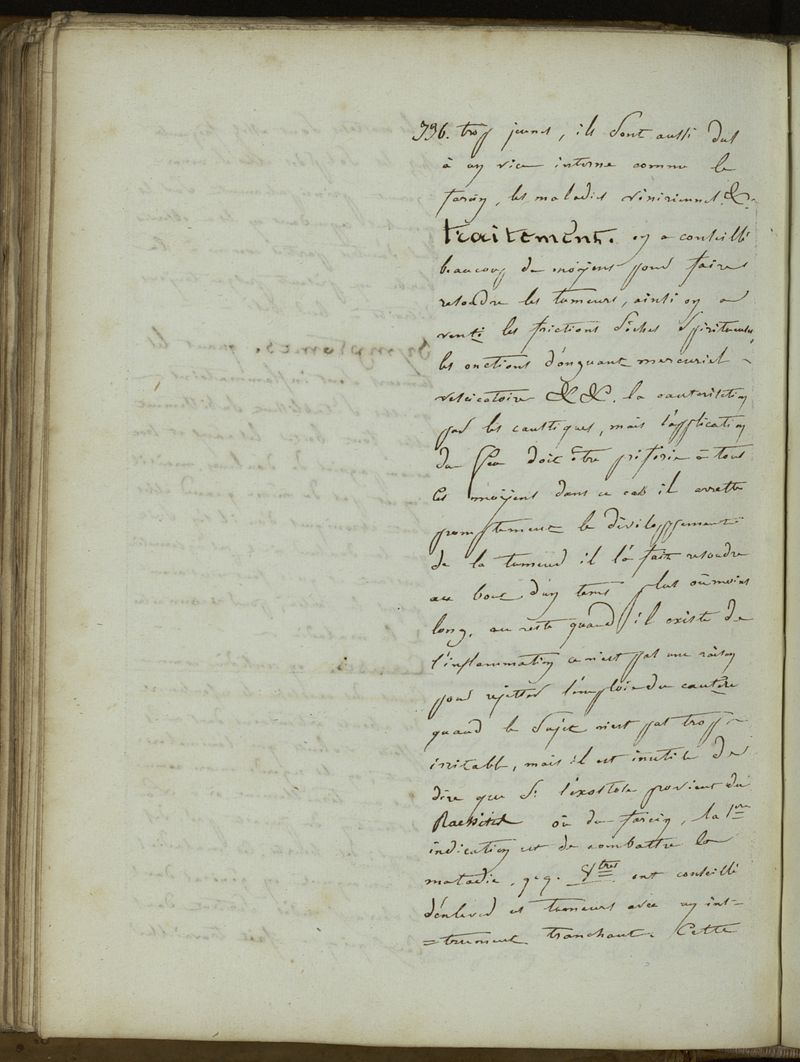 796. trop jeunes, ils sont aussi dus
à un vice interne comme le
farcin, les maladies véniriennes &.
traitement. on a conseillé
beaucoup de moÿens pour faire
resoudre les tumeurs, ainsi on a
venté les frictions séches spiritueuses
les onctions d'onguant mercuriel
vesicatoire && . la cauterisation
par les caustiques, mais l'application
du feu doit être préférée à tous
les moÿens dans ce cas il arrette
promptement le développement
de la tumeur il l'a fait resoudre
au bout d'un tems plus oû moins
long. au reste quand il existe de
l'inflammation ce n'est pas une raison
pour rejetter l'emploie du cautère
quand le sujet n'est pas trop
irritable, mais il est inutile de
dire que si l'exostose provient du
Rachitis oû du farcin, la 1re
indication est de combattre la
maladie. q.q. Vtres ont conseillé
d'enlever ces tumeurs avec un ins=
=trument tranchant. Cette